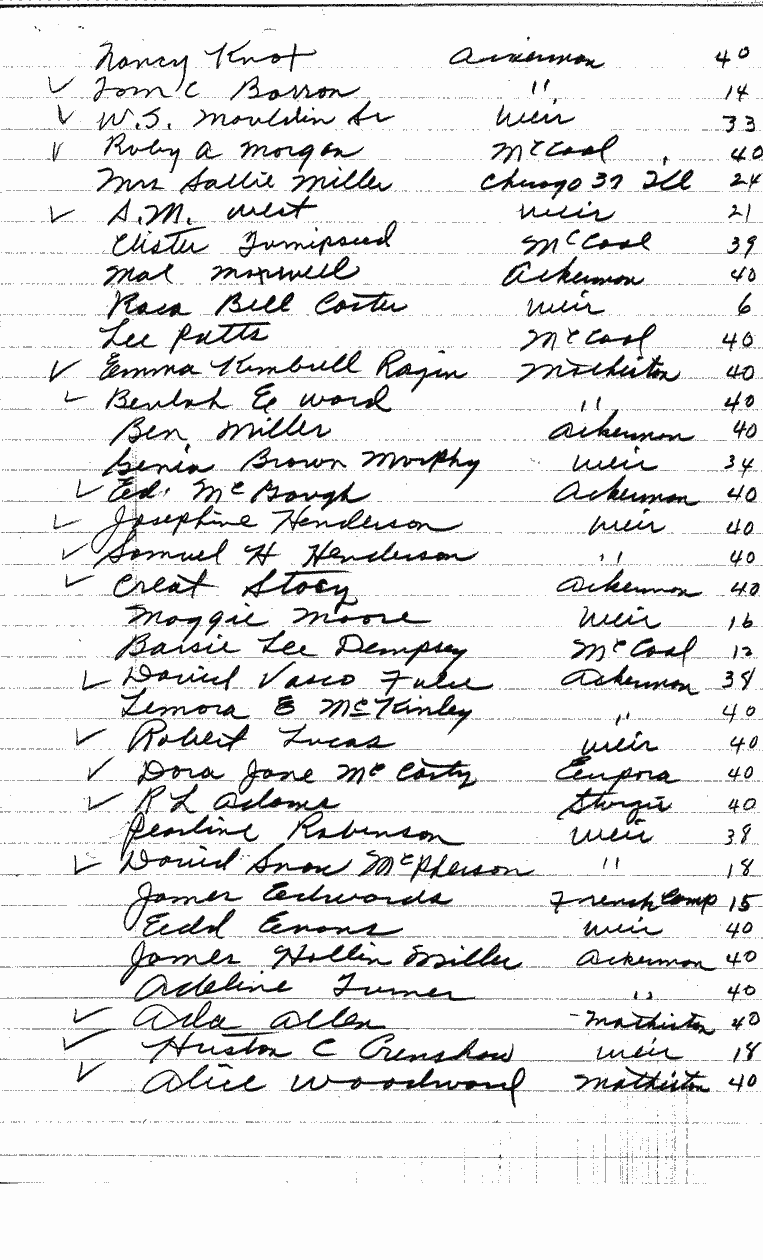 Nancy Knox Ackerman 40
✓ Tom C Barron " 14
✓ W.S. Mouldin Sr Weir 33
✓ Ruby A Morgan McCool 40
Mrs Sallie Miller Chicago 37 Ill 24
✓ S.M. West Weir 21
Clister Turnipseed McCool 39
Mae Maxwell Ackerman 40
Rosa Bell Carter Weir 6
Lee Potts McCool 40
✓ Emma Kimbrell Ragin Mathiston 40
✓ Beulah E Word " 40
Ben Miller Ackerman 40
Genia Brown Murphy Weir 34
✓ Ed. McGough Ackerman 40
✓ Josephine Henderson Weir 40
✓ Samuel H Henderson " 40
✓ Creat Stacy Ackerman 40
Maggie Moore Weir 16
Lee Dempsey McCool 12
✓ David Vasco Ackerman 38
Lemora E McKinley " 40
✓ Robert Lucas Weir 40
✓ Dora Jane McCarty Eupora 40
✓ R L Adams Sturgis 40
Pearline Robinson Weir 38
✓ David Snow McPherson " 18
James Edwards French Camp 15
Edd Evans Weir 40
James Hollin Miller Ackerman 40
Adeline Turner " 40
✓ Ada Allen Mathiston 40
✓ Huston C Crenshaw Weir 18
✓ Alice Woodward Mathiston 40